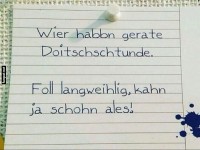 Wier habbn gerate
Doitschschtunde.
Foll langweihlig, kahn
ja schohn ales!